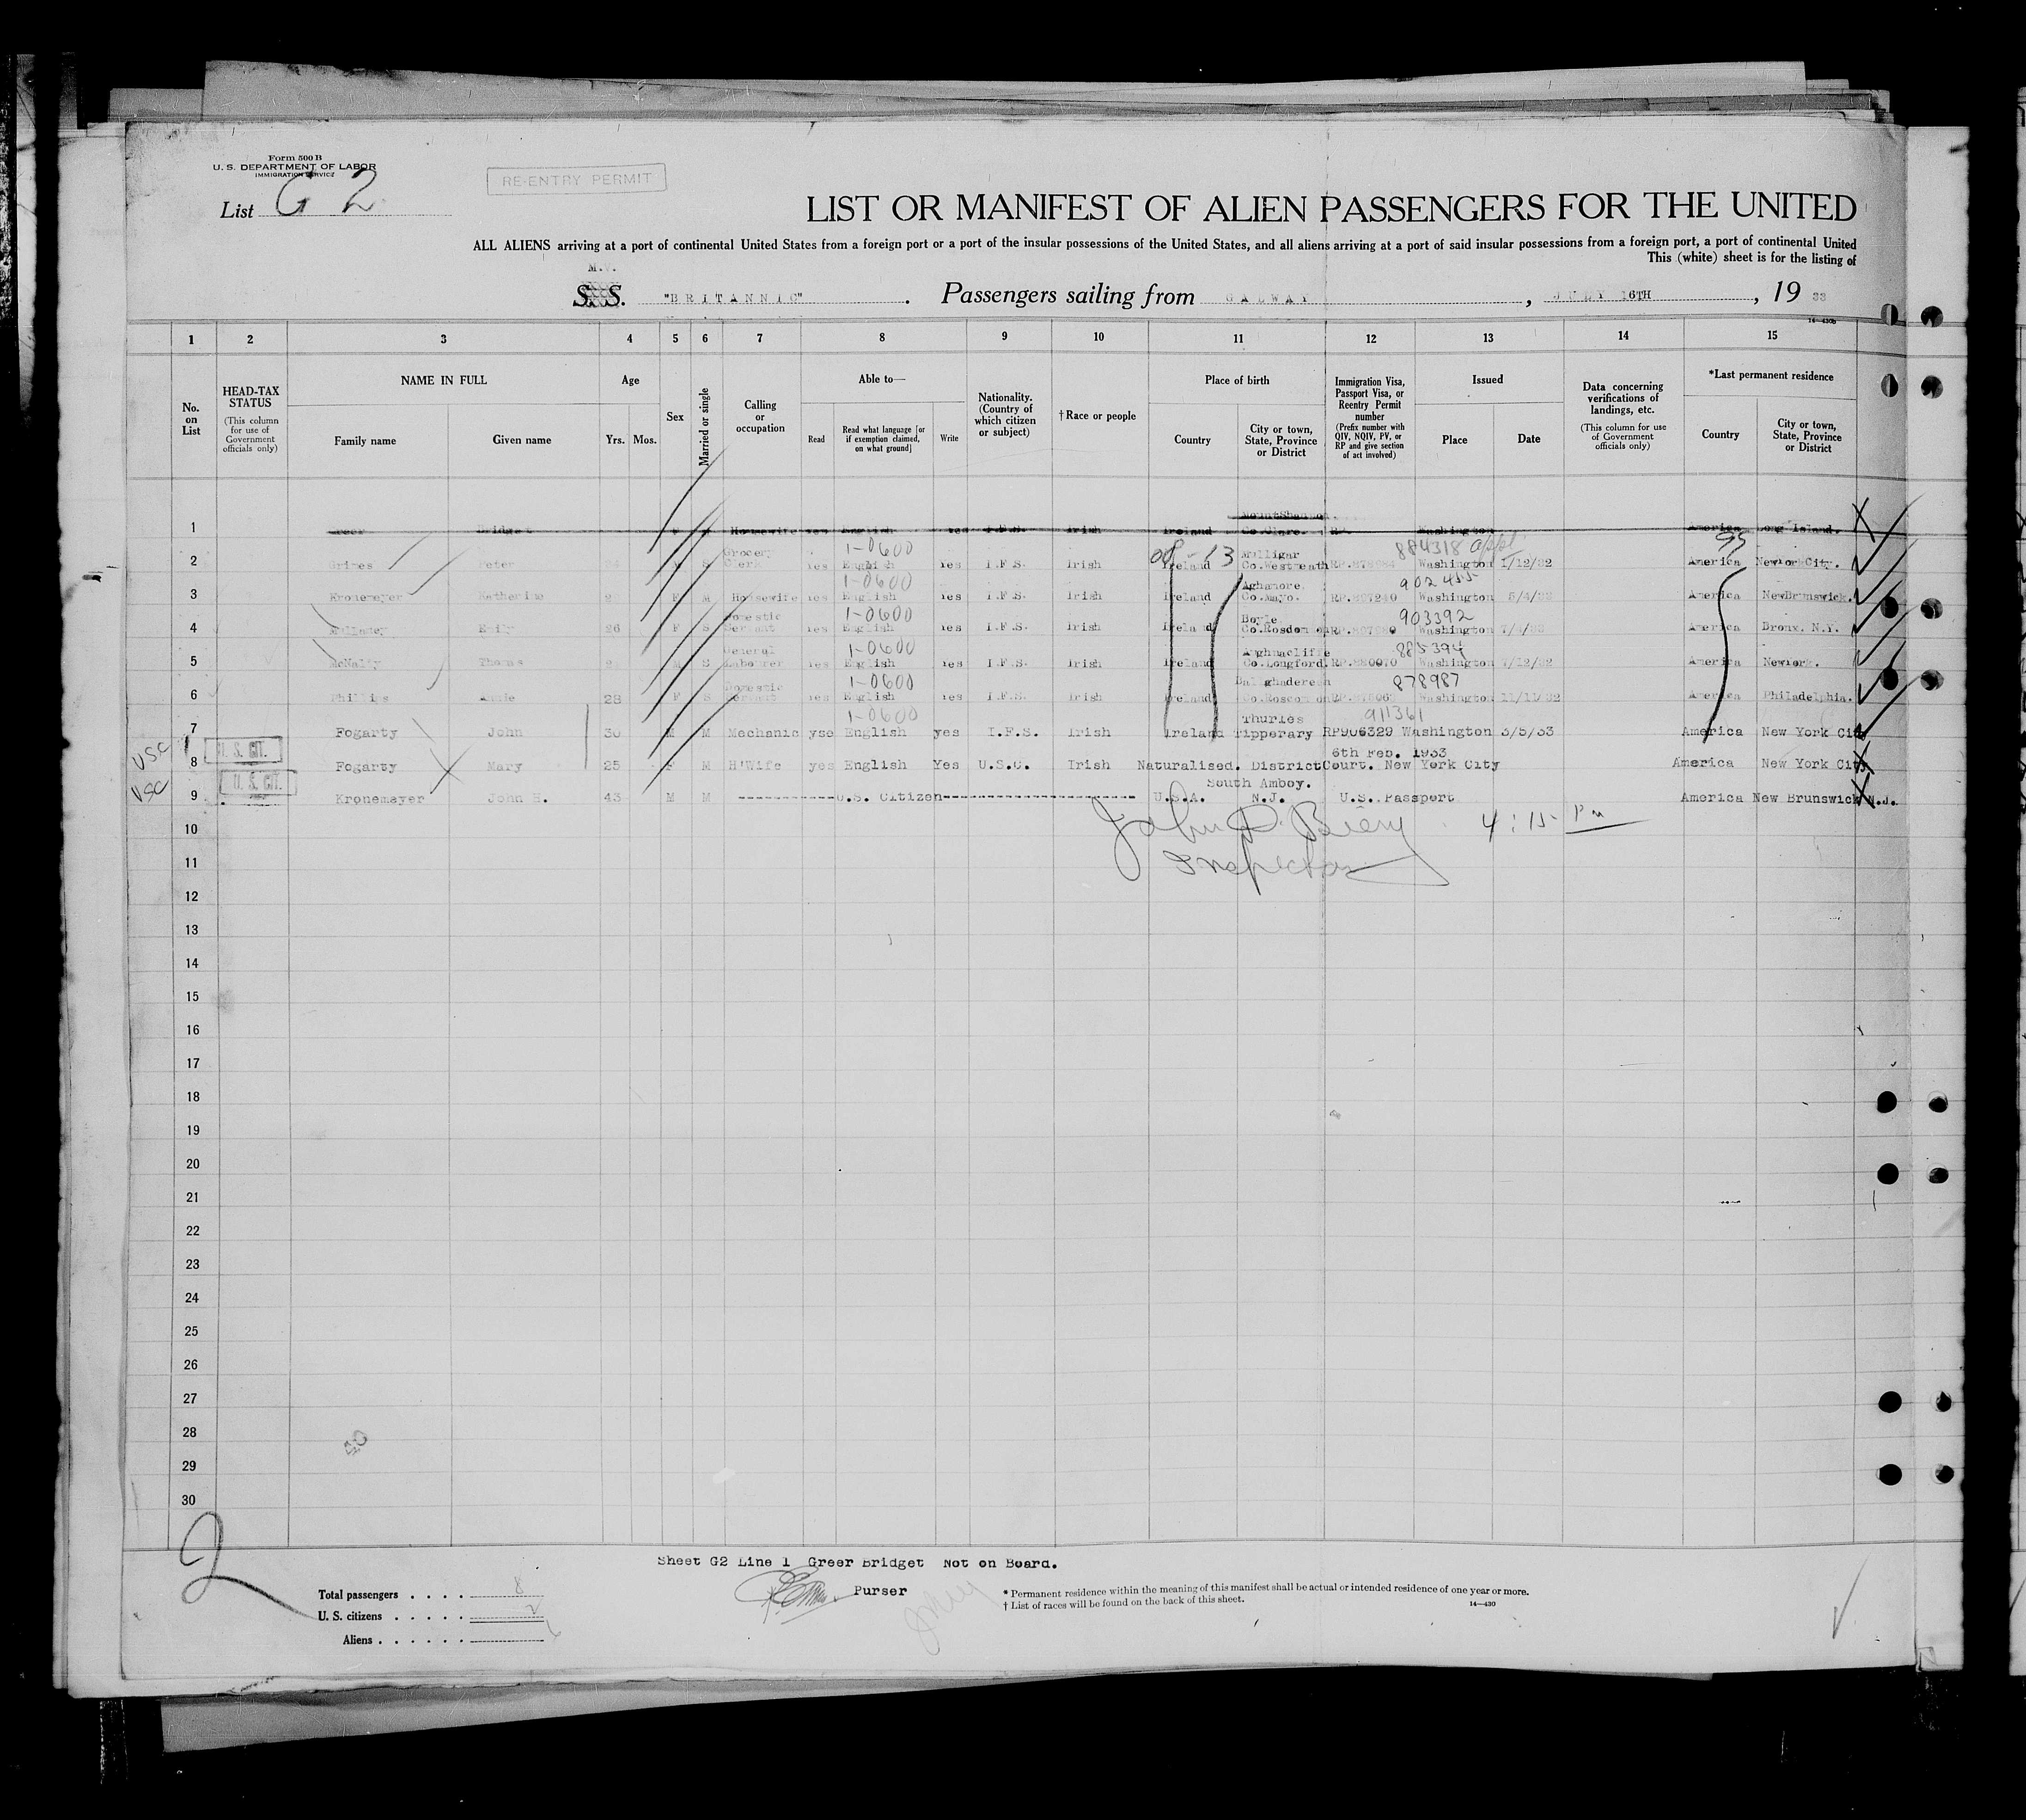 Form 500 B
U. S. DEPARTMENT OF LABOR
IMMIGRATION SERVICE
RE-ENTRY PERMIT
List G 2
LIST OR MANIFEST OF ALIEN PASSENGERS FOR THE UNITED
ALL ALIENS arriving at a port of continental United States from a foreign port or a port of the insular possessions of the United States, and all aliens arriving at a port of said insular possessions from a foreign port, a port of continental United
This (white) sheet is for the listing of
M.V.
S. S. "BRITANNIC". Passengers sailing from GALWAY, JULY 16TH, 19 33
14—430b
1 2 3 4 5 6 7 8 9 10 11 12 13 14 15
No. on List
HEAD-TAX STATUS
(This column for use of Government officials only)
NAME IN FULL
Family name
Given name
Age
Yrs. Mos.
Sex
Married or single
Calling or occupation
Able to—
Read
Read what language [or if exemption claimed, on what ground]
Write
Nationality. (Country of which citizen or subject)
† Race or people
Place of birth
Country
City or town, State, Province or District
Immigration Visa, Passport Visa, or Reentry Permit number
(Prefix number with QIV, NQIV, PV, or RP and give section of act involved)
Issued
Place
Date
Data concerning verifications of landings, etc.
(This column for use of Government officials only)
*Last permanent residence
Country
City or town, State, Province or District
1 Greer Bridget F Housewife yes English yes I.F.S. Irish Ireland Co.Clare. RP. Washington America Long Island.
Grocery 1-0600 08-13 884318 appl 99
2 Grimes Peter Clerk Yes English Yes I.F.S. Irish Ireland Co.Westmeath Washington 1/12/32 America NewYork City.
1-0600 Aghamore. 902455
3 Kronemeyer Katherine F M Housewife Yes English Yes I.F.S. Irish Ireland Co.Mayo. RP.897240 Washington America NewBrunswick.
Domestic 1-0600 Boyle 903392
4 Emily 26 F S Servant Yes English Yes I.F.S. Irish Ireland Washington America Bronx. N.Y.
General 1-0600 885394
5 McNally Thomas M S Labourer Yes English Yes I.F.S. Irish Ireland Co.Longford. RP.880070 Washington 7/12/32 America NewYork.
Domestic 1-0600 878987
6 Phillips Annie 28 F S Servant Yes English Yes I.F.S. Irish Ireland Washington America Philadelphia.
1-0600 Thurles 911361
7 Fogarty John 30 M M Mechanic yse English yes I.F.S. Irish Ireland Tipperary RP906329 Washington 3/5/33 America New York City
USC U. S. CIT. 6th Feb. 1933
8 Fogarty Mary 25 F M H'Wife yes English Yes U.S.C. Irish Naturalised. District Court. New York City America New York City
USC U. S. CIT. South Amboy.
9 Kronemayer John H. 43 M M ------------U.S. Citizen---------------------- U.S.A. N.J. U.S. Passport America New Brunswick N.J.
10 John D. Biery 4:15 Pm
11 Inspector
12
13
14
15
16
17
18
19
20
21
22
23
24
25
26
27
28
29
30
2
Sheet G2 Line 1 Greer Bridget Not on Board.
Purser
Total passengers . . . . 8
U. S. citizens . . . . . 2
Aliens . . . . . . 6
* Permanent residence within the meaning of this manifest shall be actual or intended residence of one year or more.
† List of races will be found on the back of this sheet.
14—430